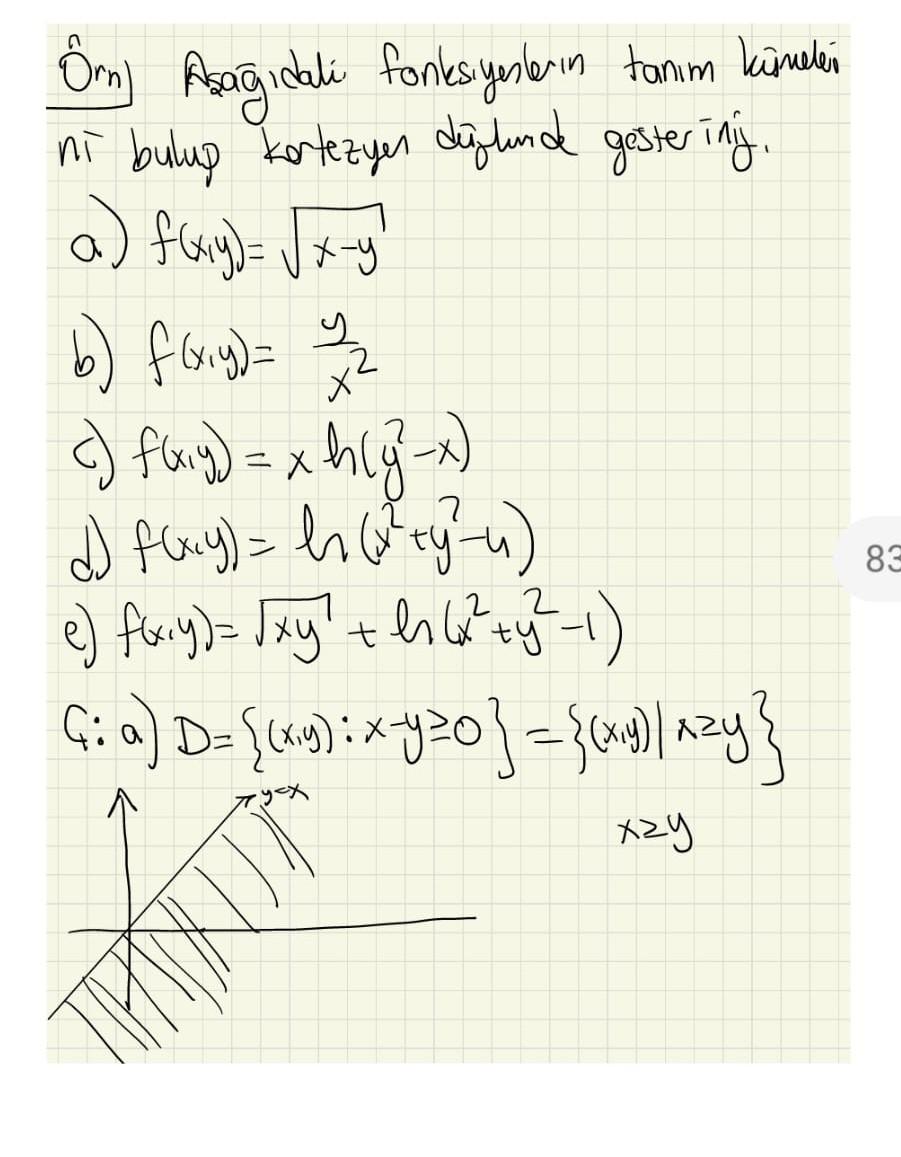 Örn) Aşağıdaki fonksiyonların tanım kümeleri
ni bulup kartezyen düzlemde gösteriniz.
a) f(x,y)= √(x-y)
b) f(x,y)= y/x²
c) f(x,y) = x ln(y²-x)
d) f(x,y) = ln(x²+y²-4)
e) f(x,y)= √(xy) + ln(x²+y²-1)
Ç: a) D= {(x,y): x-y≥0} = {(x,y)| x≥y}
y=x
x≥y
83